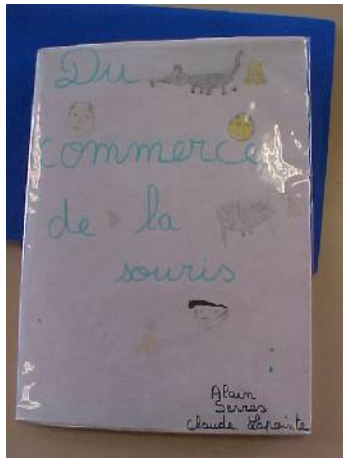 Du
commerce
de la
souris
Alain
Serres
Claude Lapointe